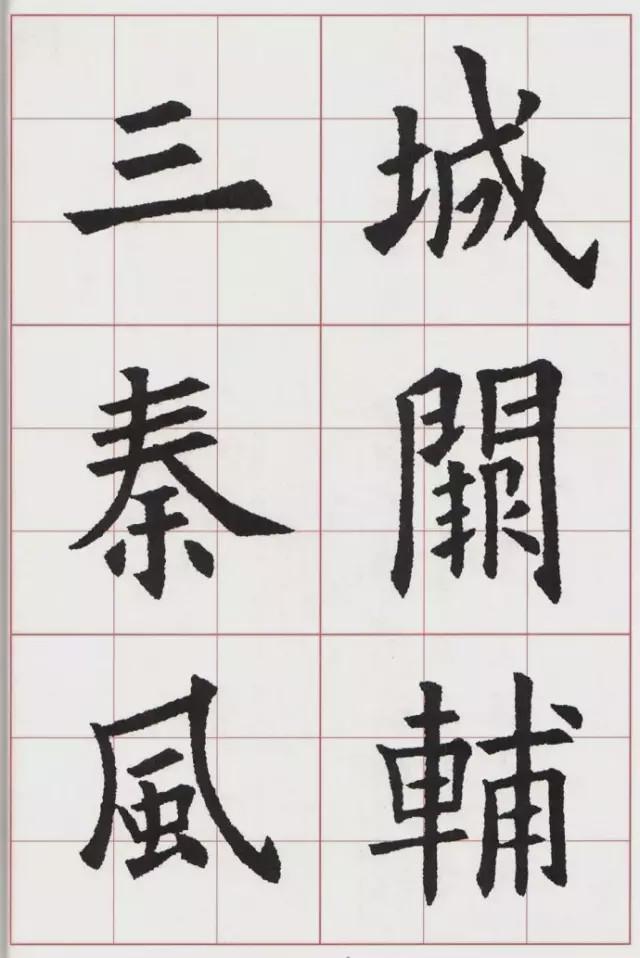 城闕輔
三秦風